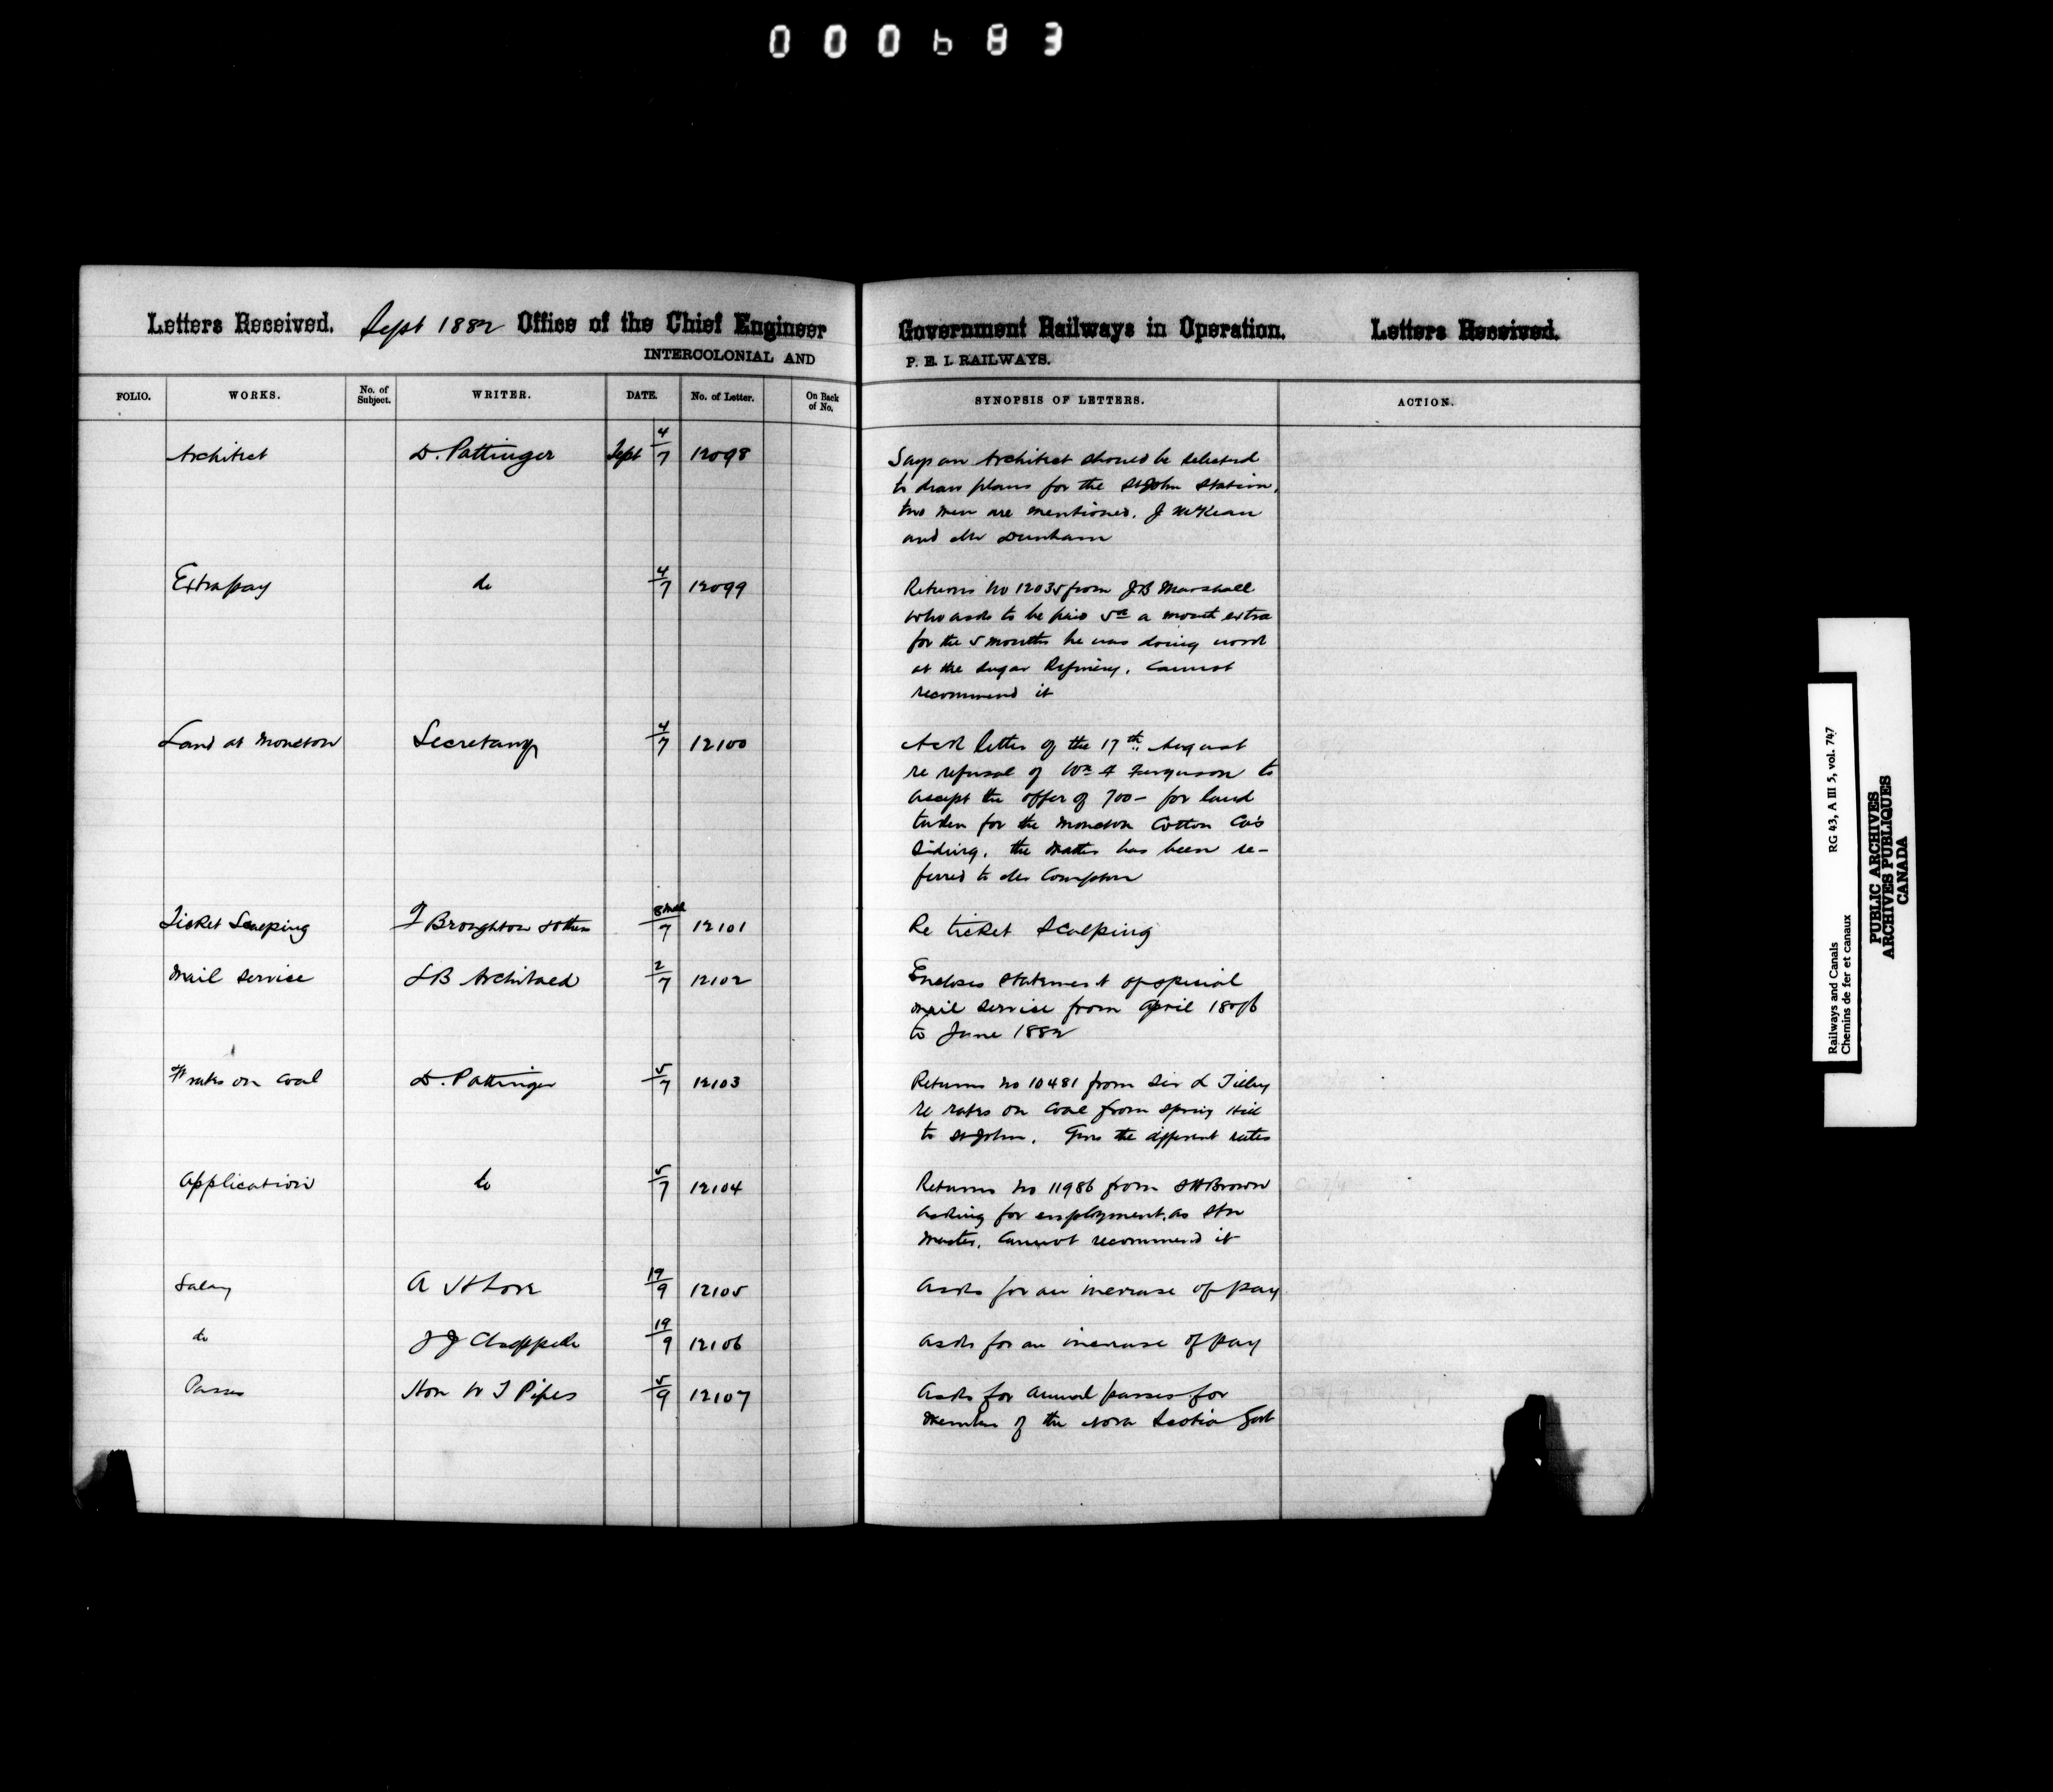 000683
Letters Received. Sept 1882 Office of the Chief Engineer Government Railways in Operation. Letters Received.
INTERCOLONIAL AND P. E. I. RAILWAYS.
FOLIO. WORKS. No. of Subject. WRITER. DATE. No. of Letter. On Back of No. SYNOPSIS OF LETTERS. ACTION.
Architect D. Pottinger Sept 4/7 12098 Says an Architect should be selected
to draw plans for the St John Station.
two men are mentioned. J McKean
and Mr Dunham
Extra pay do 4/7 12099 Returns No 12035 from J.B Marshall
who asks to be paid 5 00 a month extra
for the 5 months he was doing work
at the Sugar Refinery. Cannot
recommend it
Land at Moncton Secretary 4/7 12100 Ack letter of the 17th August
re refusal of Wm Ferguson to
accept the offer of 700- for land
taken for the Moncton Cotton Co's
Siding. the matter has been re-
ferred to Mr Compton
Ticket Scalping J Broughton & others 8 Mch/7 12101 Re ticket Scalping
Mail Service S B Archibald 2/7 12102 Encloses Statement of special
mail service from April 1876
to June 1882
Frt rates on Coal D. Pottinger 5/7 12103 Returns No 10481 from Sir L Tilley
re rates on Coal from Spring Hill
to St John. Gives the different rates
Application do 5/7 12104 Returns No 11986 from S H Brown
asking for employment as Stn
Master. Cannot recommend it
Salary A 19/9 12105 Asks for an increase of pay
do J J Chappell 19/9 12106 Asks for an increase of pay
Passes Hon W T Pipes 5/9 12107 Asks for annual passes for
members of the Nova Scotia Govt
Railways and Canals RG 43, A III 5, vol. 747
Chemins de fer et canaux
PUBLIC ARCHIVES
ARCHIVES PUBLIQUES
CANADA